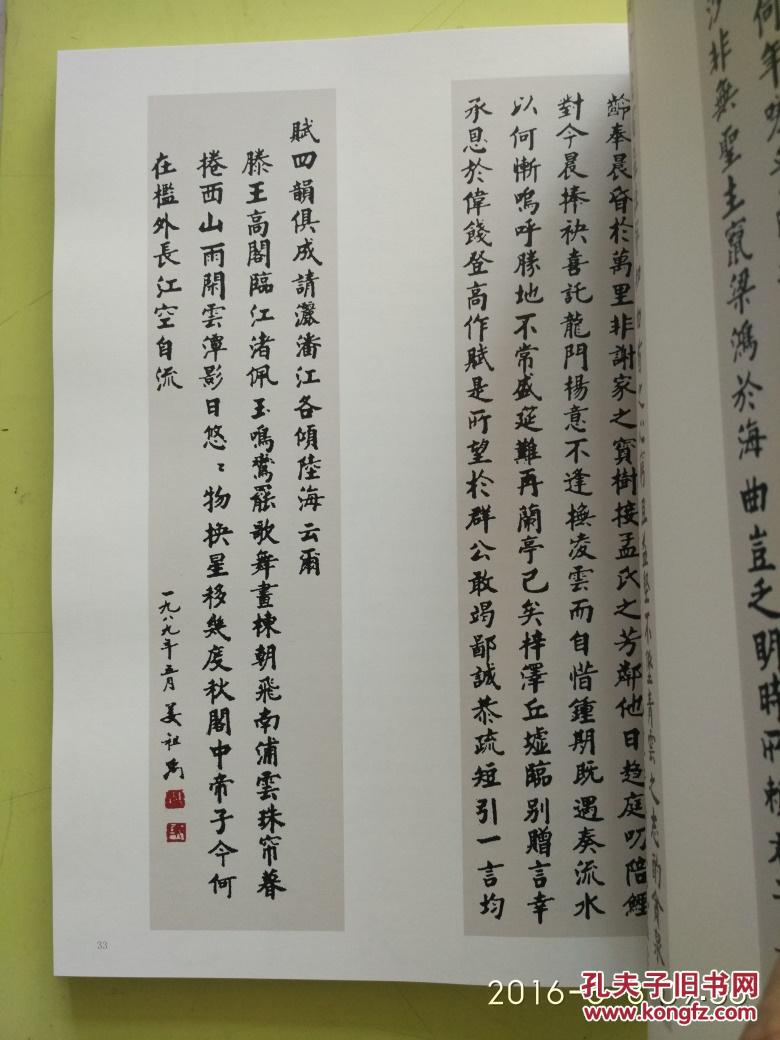 何年
沙非無聖主竄梁鴻於海曲豈乏明時所賴
青雲之志酌貪泉
齡奉晨昏於萬里非謝家之寶樹接孟氏之芳鄰他日趋庭叨陪鯉
對今晨捧袂喜託龍門楊意不逢撫凌雲而自惜鍾期既遇奏流水
以何慚嗚呼勝地不常盛筵難再蘭亭已矣梓澤丘墟臨别贈言幸
承恩於偉餞登高作賦是所望於群公敢竭鄙誠恭疏短引一言均
賦四韻俱成請灑潘江各傾陸海云爾
滕王高閣臨江渚佩玉鳴鸞罷歌舞畫棟朝飛南浦雲珠帘暮
捲西山雨閑雲潭影日悠〻物换星移幾度秋閣中帝子今何
在檻外長江空自流
一九八九年五月姜祖禹
33
孔夫子旧书网
www.kongfz.com